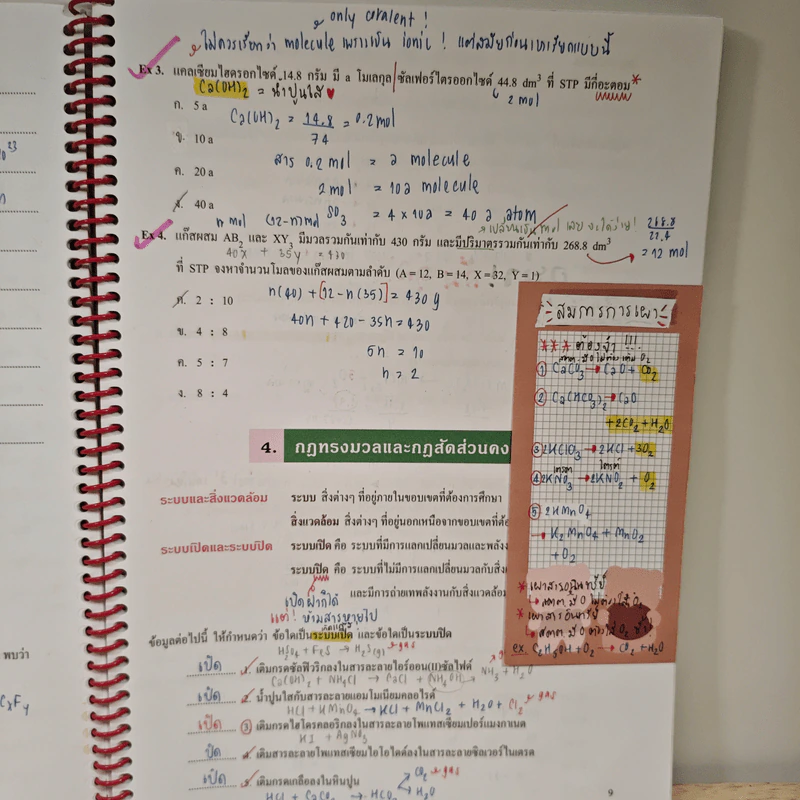 only covalent !
ไม่ควรเรียกว่า molecule เพราะเป็น ionic ! แต่สมัยก่อนเขาเรียกแบบนี้
Ex 3. แคลเซียมไฮดรอกไซด์ 14.8 กรัม มี a โมเลกุล ซัลเฟอร์ไตรออกไซด์ 44.8 dm³ ที่ STP มีกี่อะตอม*
Ca(OH)₂ = น้ำปูนใส ♥
2 mol
ก. 5 a
Ca(OH)₂ = 14.8/74 = 0.2 mol
ข. 10 a
สาร 0.2 mol = a molecule
ค. 20 a
2 mol = 10 a molecule
ง. 40 a
SO₃ = 4 × 10a = 40 a atom
n mol (12-n) mol
→ เปลี่ยนเป็น mol เลย จะได้ง่าย!
268.8/22.4 = 12 mol
Ex 4. แก๊สผสม AB₂ และ XY₃ มีมวลรวมกันเท่ากับ 430 กรัม และมีปริมาตรรวมกันเท่ากับ 268.8 dm³
40x + 35y = 430
ที่ STP จงหาจำนวนโมลของแก๊สผสมตามลำดับ (A = 12, B = 14, X = 32, Y = 1)
ก. 2 : 10
n(40) + [12-n(35)] = 430 g
ข. 4 : 8
40n + 420 - 35n = 430
ค. 5 : 7
5n = 10
n = 2
ง. 8 : 4
สมการการเผา
*** ต้องจำ !!!
① CaCO₃ → CaO + CO₂
② Ca(HCO₃)₂ → CaO
+ 2CO₂ + H₂O
③ 2KClO₃ → 2KCl + 3O₂
④ 2KNO₃ → 2KNO₂ + O₂
⑤ 2KMnO₄
→ K₂MnO₄ + MnO₂
+ O₂
* เผาสารอนินทรีย์
* เผาสารอินทรีย์
ex. C₂H₅OH + O₂ → CO₂ + H₂O
4. กฎทรงมวลและกฎสัดส่วนคง
ระบบและสิ่งแวดล้อม ระบบ สิ่งต่างๆ ที่อยู่ภายในขอบเขตที่ต้องการศึกษา
สิ่งแวดล้อม สิ่งต่างๆ ที่อยู่นอกเหนือจากขอบเขตที่ต้อ
ระบบเปิดและระบบปิด ระบบเปิด คือ ระบบที่มีการแลกเปลี่ยนมวลและพลังง
ระบบปิด คือ ระบบที่ไม่มีการแลกเปลี่ยนมวลกับสิ่งแ
และมีการถ่ายเทพลังงานกับสิ่งแวดล้อม
เปิดฝาก็ได้
แต่! ห้ามสารหายไป
ข้อมูลต่อไปนี้ ให้กำหนดว่า ข้อใดเป็นระบบเปิด และข้อใดเป็นระบบปิด
H₂SO₄ + FeS → H₂S(g) → gas
เปิด 1. เติมกรดซัลฟิวริกลงในสารละลายไอร์ออน(II)ซัลไฟด์
Ca(OH)₂ + NH₄Cl → CaCl + (NH₄OH) → NH₃ + H₂O
เปิด 2. น้ำปูนใสกับสารละลายแอมโมเนียมคลอไรด์
HCl + KMnO₄ → KCl + MnCl₂ + H₂O + Cl₂ → gas
เปิด ③ เติมกรดไฮโดรคลอริกลงในสารละลายโพแทสเซียมเปอร์แมงกาเนต
KI + AgNO₃
ปิด 4. เติมสารละลายโพแทสเซียมไอโอไดด์ลงในสารละลายซิลเวอร์ไนเตรต
เปิด 5. เติมกรดเกลือลงในหินปูน
CO₂ → gas
H₂O
9
พบว่า